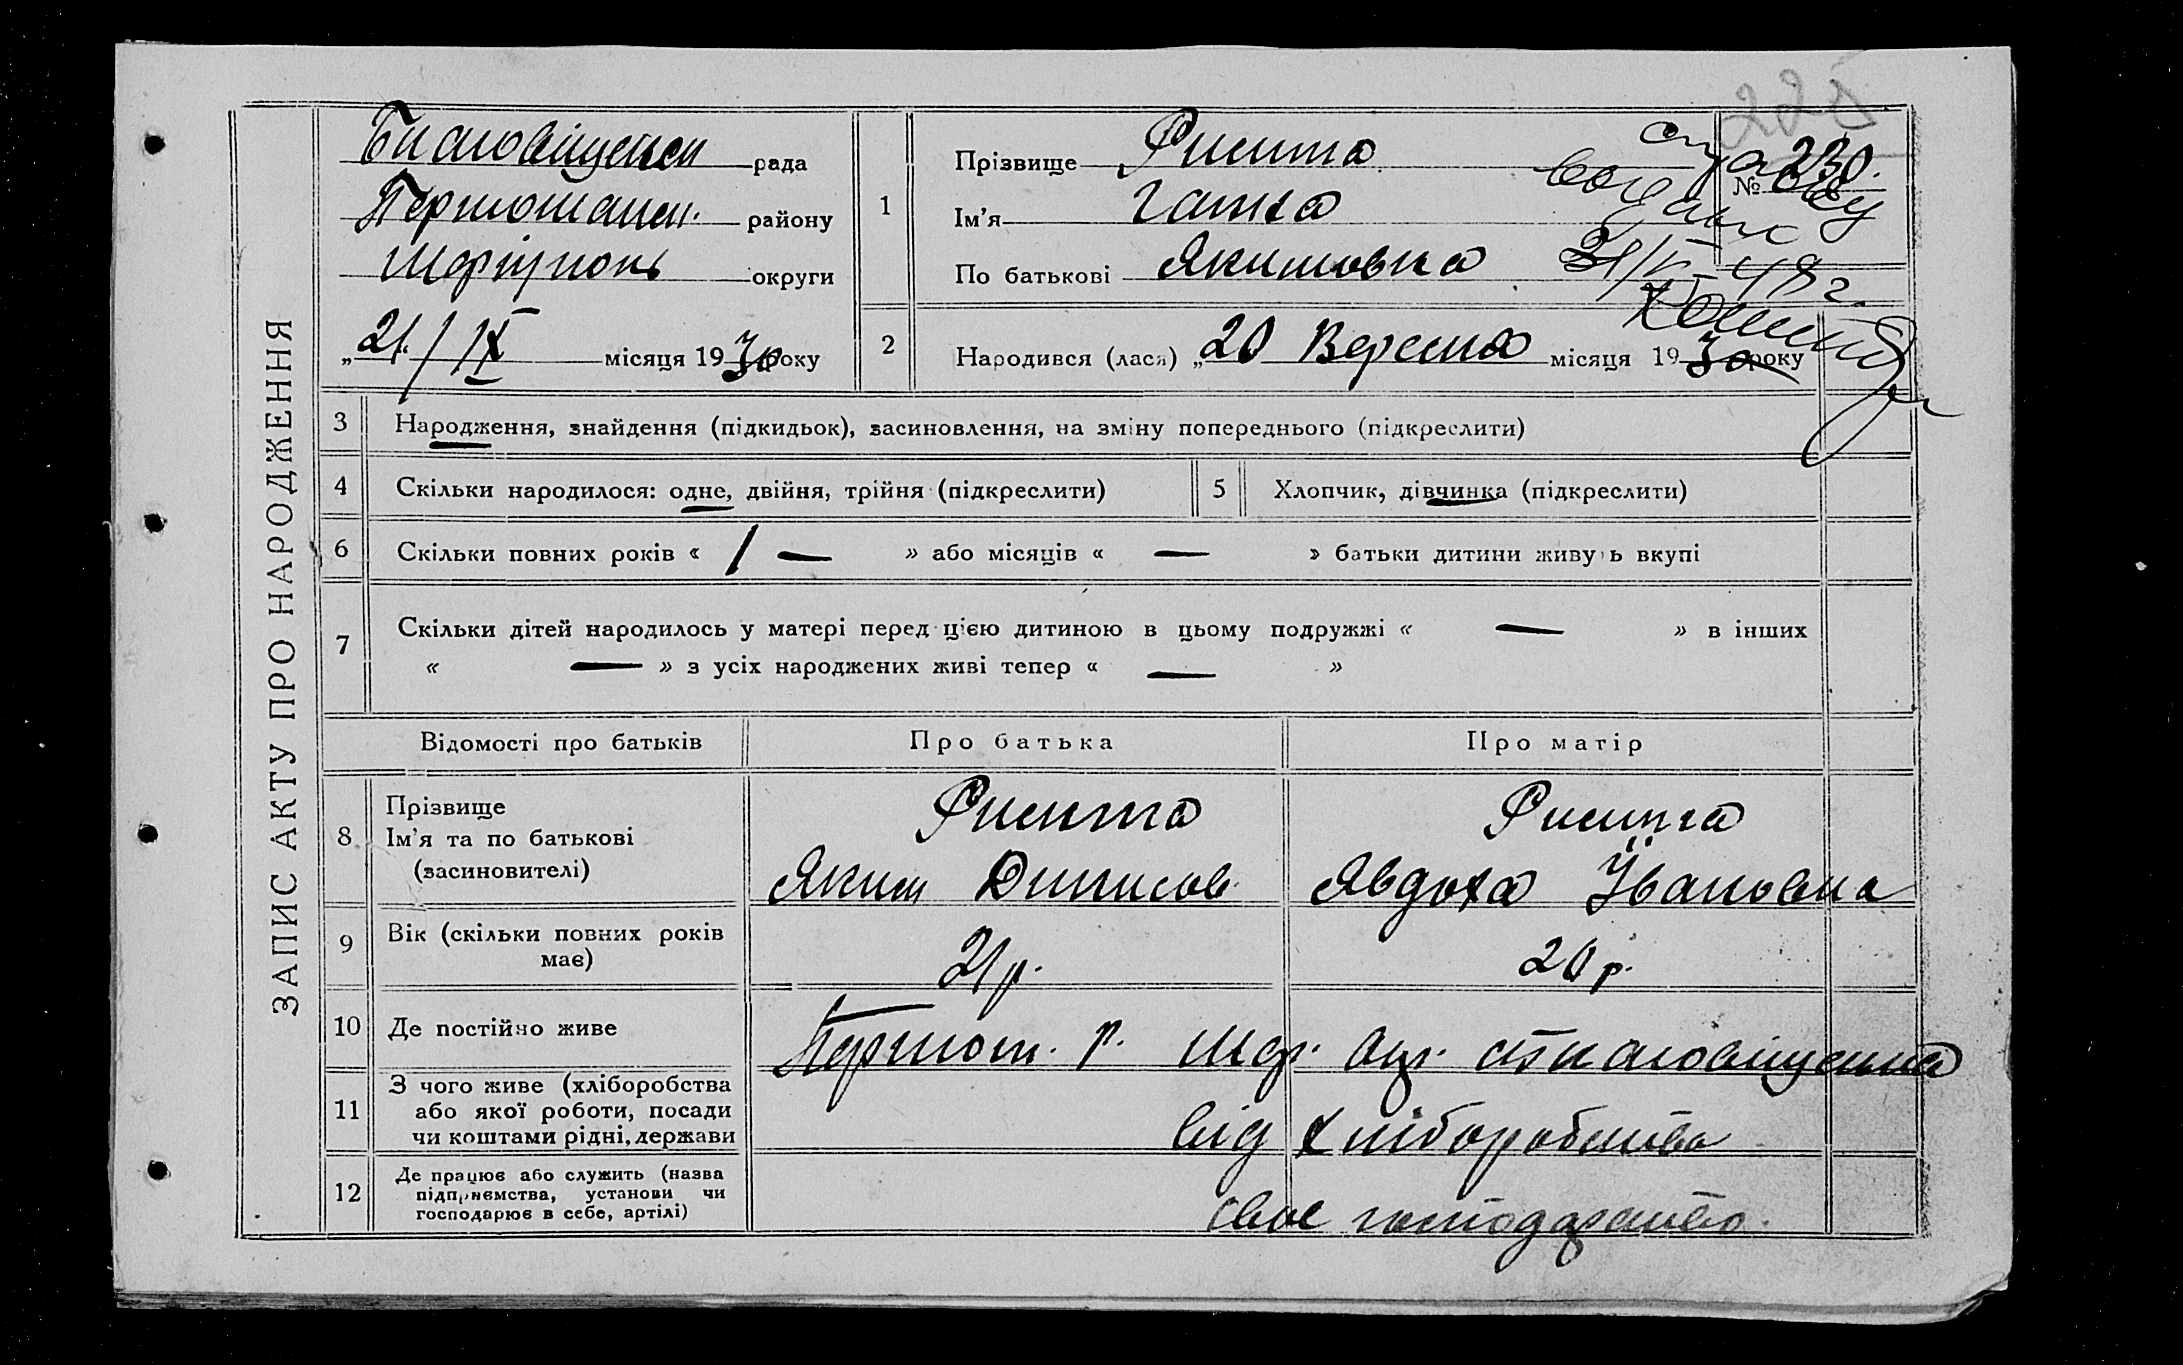 ЗАПИС АКТУ ПРО НАРОДЖЕННЯ
225
Благовіщенськ рада
Першотравен. району
Маріупонь округи
„21/IX місяця 1930 року
1 Прізвище Рисита
Ім'я Ганна
По батькові Якимовна
№ 230.
видано
31/V-48 г.
2 Народився (лася) „20 Вересня місяця 1930 року
3 Народження, знайдення (підкидьок), засиновлення, на зміну попереднього (підкреслити)
4 Скільки народилося: одне, двійня, трійня (підкреслити)
5 Хлопчик, дівчинка (підкреслити)
6 Скільки повних років « / — » або місяців « — » батьки дитини живуть вкупі
7 Скільки дітей народилось у матері перед цією дитиною в цьому подружжі « — » в інших
« — » з усіх народжених живі тепер « — »
Відомості про батьків Про батька Про матір
8 Прізвище
Ім'я та по батькові
(засиновителі)
Рисита
Яким Динисов
Рисита
Явдоха Івановна
9 Вік (скільки повних років
має)
21 р. 20 р.
10 Де постійно живе
Першот. р. Мар. окр. с Благовіщенка
11 З чого живе (хліборобства
або якої роботи, посади
чи коштами рідні, держави
від хліборобства
12 Де працює або служить (назва
підприємства, установи чи
господарює в себе, артілі)
своє господарство.